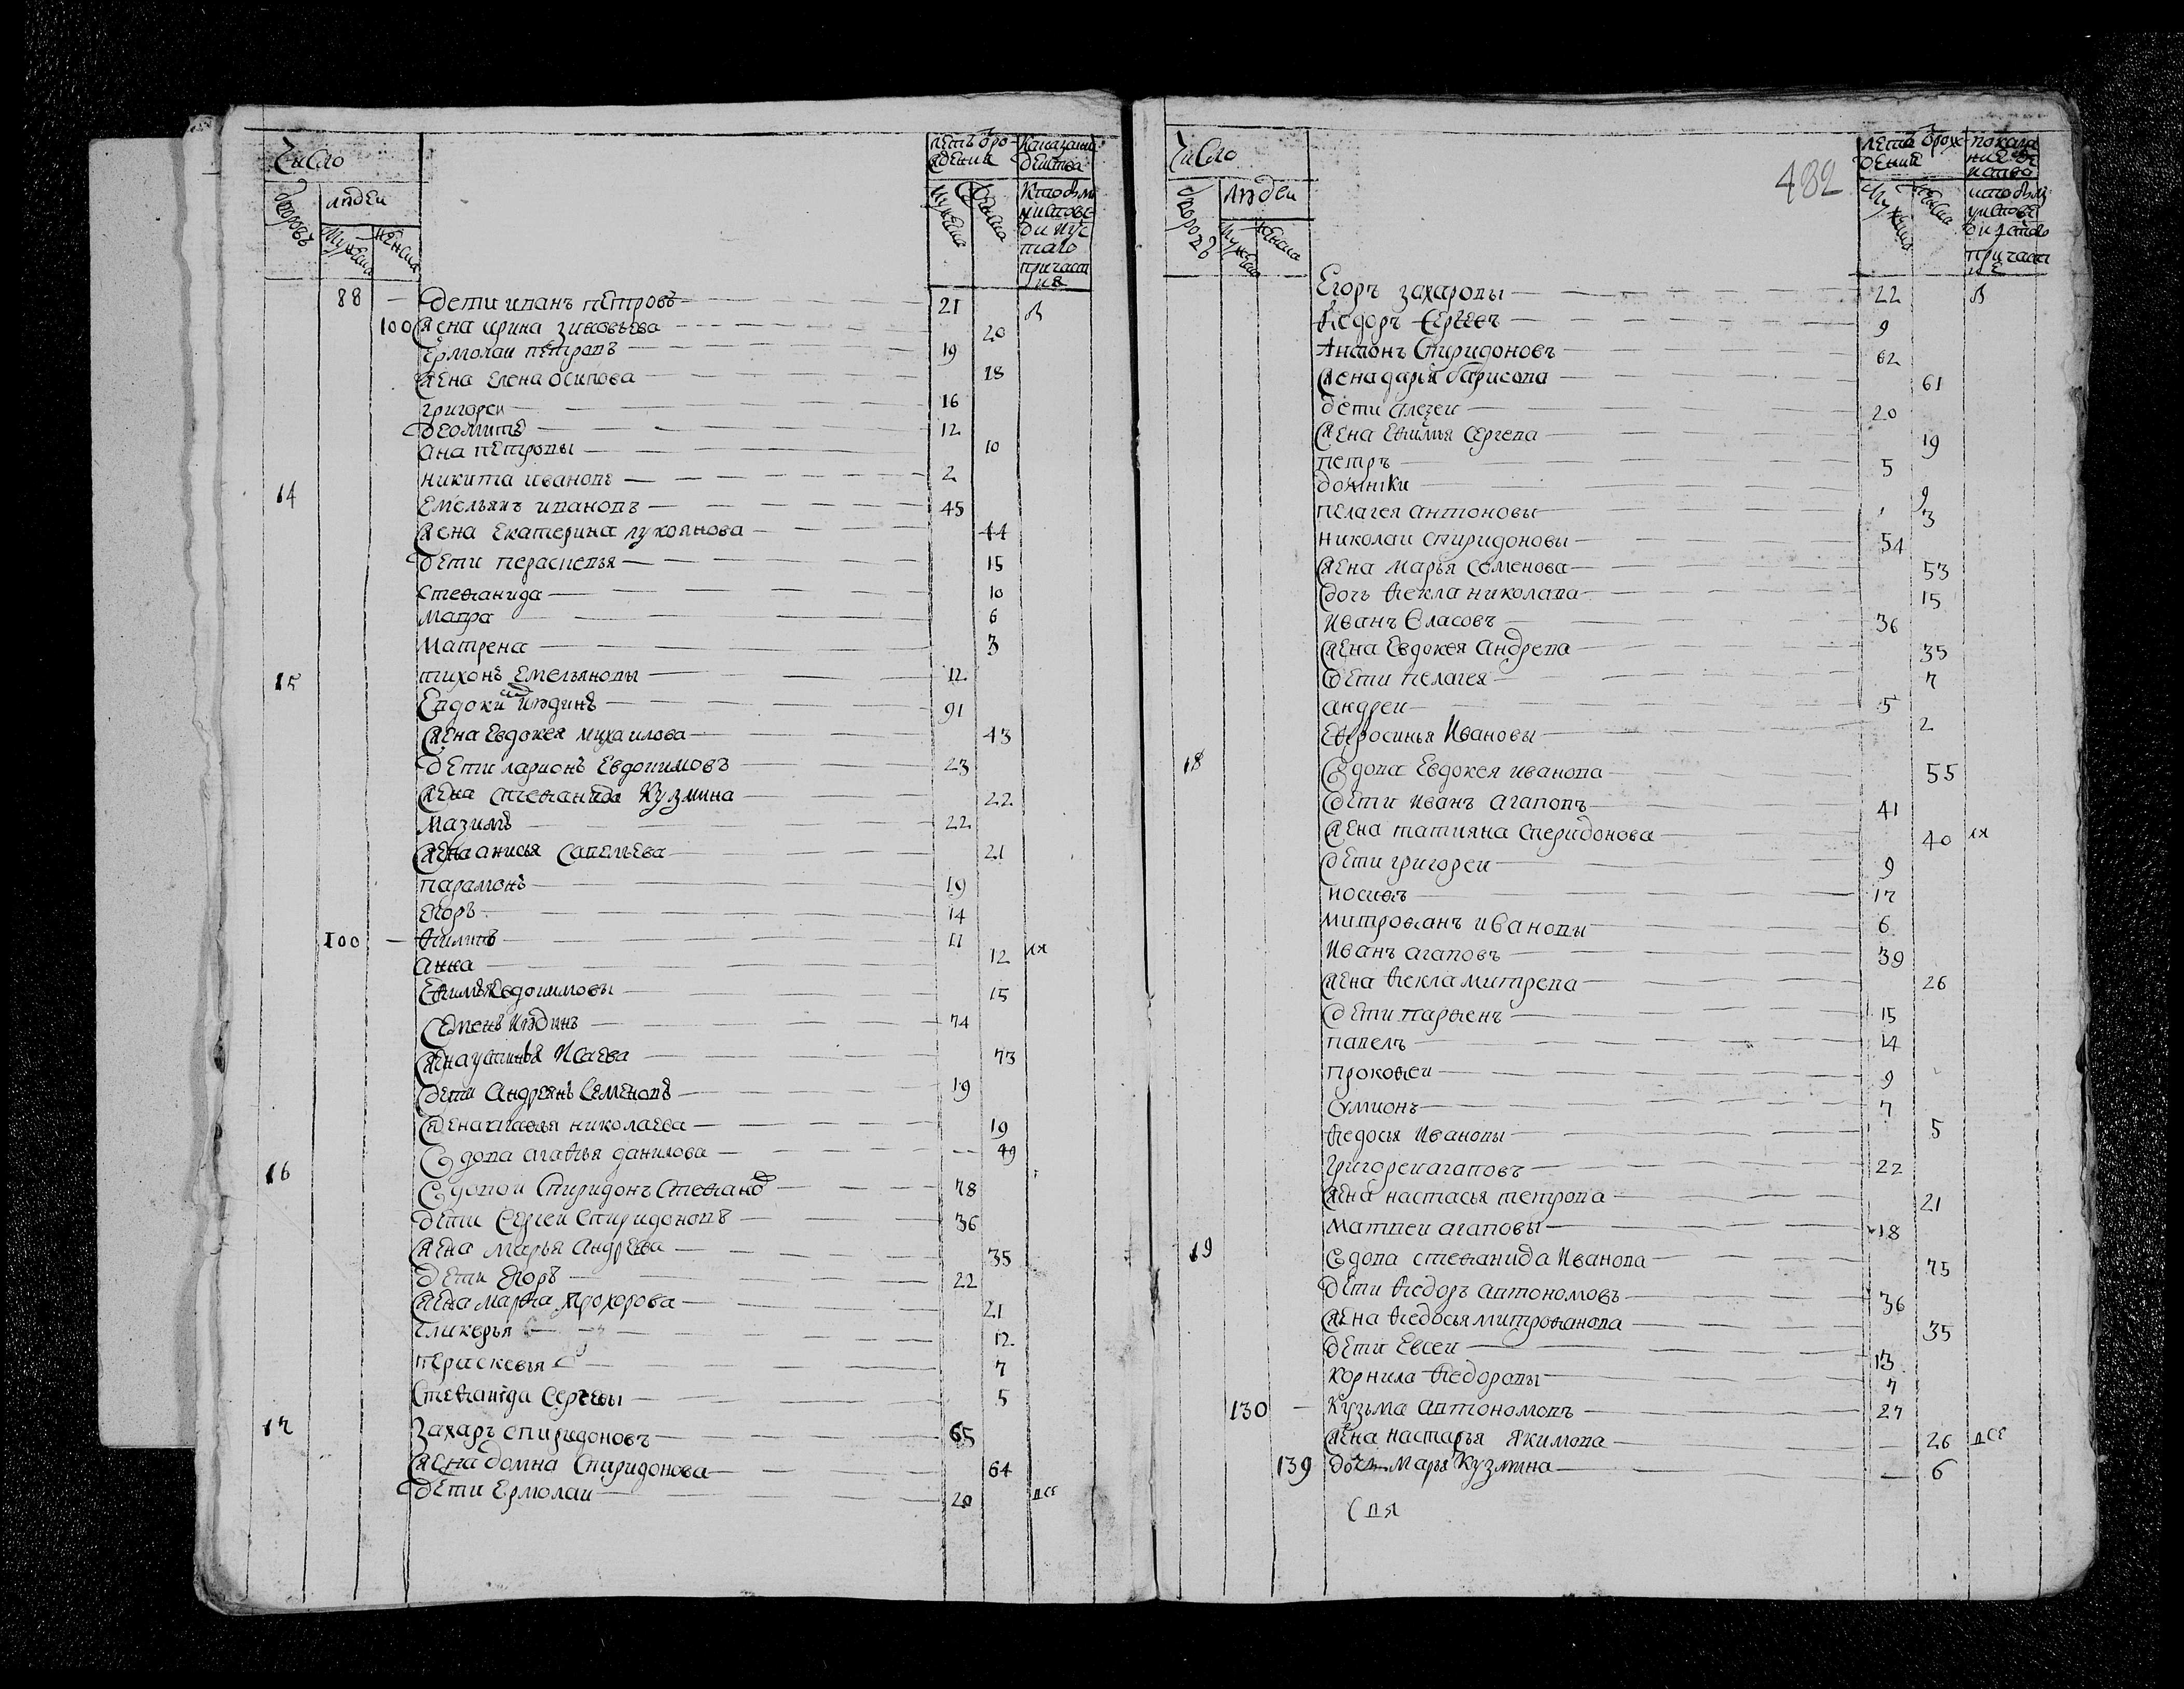 Число
Дворовъ
людеи
мужеска
женска
летъ врождения
мужеска
женска
88 — дети иванъ петровъ 21 в
100 жена ирина зиновьева 20
Ермолаи петровъ 19
жена Елена осипова 18
григореи 16
12
ана петровы 10
никита ивановъ 2
14 Емельянъ ивановъ 45
жена Екатерина лукоянова 44
дети парасковья 15
стефанида 10
мавра 6
матрена 3
15 тихонъ Емельяновы 12
91
жена Евдокея михаилова 43
дети ларионъ Евдокимовъ 23
жена стефанида Кузмина 22
мазимъ 22
жена анисья савельева 21
парамонъ 19
Егоръ 14
100 — филипъ 11
анна 12 ия
Ефимья Евдокимовы 15
Семенъ 74
жена устинья Исаева 73
дети Андреянъ Семеновъ 19
жена николаева 19
вдова агафья данилова — 49
16 вдовои Спиридонъ Стефанов 78
дети Сергеи Спиридоновъ 36
жена марья андреева 35
дети Егоръ 22
жена марфа прохорова 21
гликерья 12
пераскевья 7
Стефанида Сергевы 5
17 Захаръ спиридоновъ 65
жена домна Спиридонова 64
дети Ермолаи 20 все
Число
Дворовъ
людеи
мужеска
женска
482
летъ врождения
мужеска
женска
Егоръ захаровы 22 в
федоръ Сергеевъ 9
Антонъ Спиридоновъ 62
жена дарья барисова 61
дети алезеи 20
жена Ефимья Сергева 19
петръ 5
домники 9
пелагея антоновы 3
николаи спиридоновы 54
жена марья Семенова 53
дочь фекла николава 15
Иванъ Власовъ 36
жена Евдокея андрева 35
дети пелагея 7
андреи 5
Ефросинья Ивановы 2
18 вдова Евдокея иванова 55
дети иванъ агаповъ 41
жена татияна спиридонова 40 ия
дети григореи 9
иосифъ 17
митрофанъ ивановы 6
Иванъ агаповъ 39
жена фекла митрева 26
дети парфенъ 15
павелъ 14
прокофеи 9
Сумионъ 7
федосья Ивановы 5
Григореи агаповъ 22
жена настасья петрова 21
матвеи агаповы 18
19 вдова стефанида Иванова 75
дети федоръ автономовъ 36
жена федосья митрофанова 35
дети Евсеи 13
корнила федоровы 7
130 — Кузьма автономовъ 27
жена настасья Якимова — 26 все
139 дочь Марья Кузмина — 6